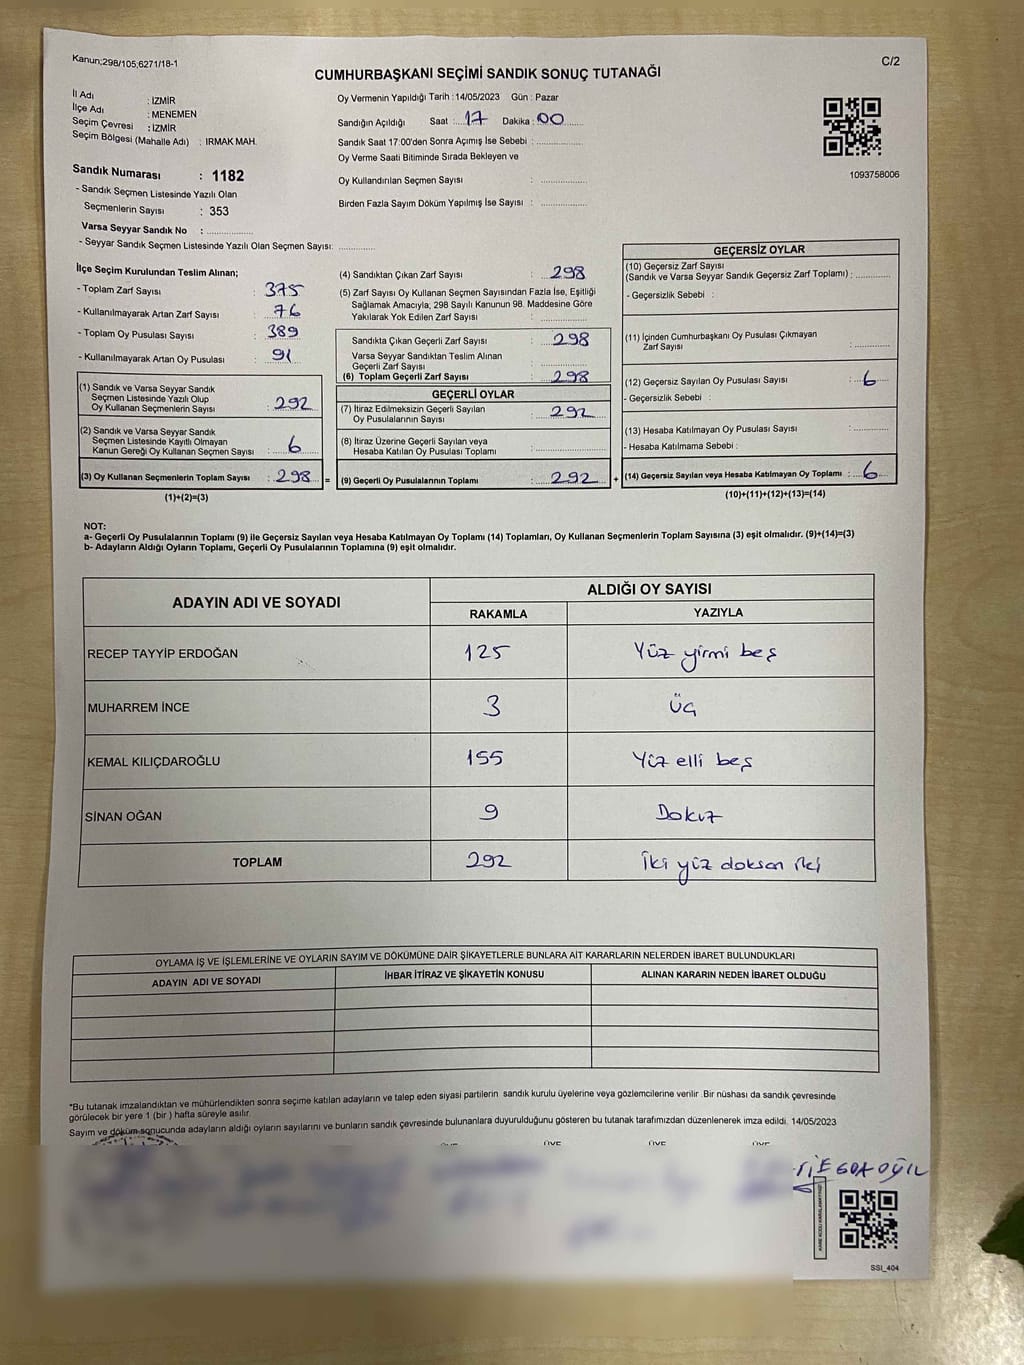 Kanun;298/105;6271/18-1
C/2
CUMHURBAŞKANI SEÇİMİ SANDIK SONUÇ TUTANAĞI
İl Adı : İZMİR
İlçe Adı : MENEMEN
Seçim Çevresi : İZMİR
Seçim Bölgesi (Mahalle Adı) : IRMAK MAH.
Oy Vermenin Yapıldığı Tarih : 14/05/2023 Gün : Pazar
Sandığın Açıldığı Saat : 17 Dakika : 00
Sandık Saat 17:00'den Sonra Açılmış İse Sebebi :
Oy Verme Saati Bitiminde Sırada Bekleyen ve
Oy Kullandırılan Seçmen Sayısı :
Birden Fazla Sayım Döküm Yapılmış İse Sayısı :
1093758006
Sandık Numarası : 1182
- Sandık Seçmen Listesinde Yazılı Olan
Seçmenlerin Sayısı : 353
Varsa Seyyar Sandık No :
- Seyyar Sandık Seçmen Listesinde Yazılı Olan Seçmen Sayısı:
İlçe Seçim Kurulundan Teslim Alınan;
- Toplam Zarf Sayısı : 375
- Kullanılmayarak Artan Zarf Sayısı : 76
- Toplam Oy Pusulası Sayısı : 389
- Kullanılmayarak Artan Oy Pusulası : 91
(1) Sandık ve Varsa Seyyar Sandık
Seçmen Listesinde Yazılı Olup
Oy Kullanan Seçmenlerin Sayısı : 292
(2) Sandık ve Varsa Seyyar Sandık
Seçmen Listesinde Kayıtlı Olmayan
Kanun Gereği Oy Kullanan Seçmen Sayısı : 6
(3) Oy Kullanan Seçmenlerin Toplam Sayısı : 298 =
(1)+(2)=(3)
(4) Sandıktan Çıkan Zarf Sayısı : 298
(5) Zarf Sayısı Oy Kullanan Seçmen Sayısından Fazla İse, Eşitliği
Sağlamak Amacıyla, 298 Sayılı Kanunun 98. Maddesine Göre
Yakılarak Yok Edilen Zarf Sayısı :
Sandıkta Çıkan Geçerli Zarf Sayısı : 298
Varsa Seyyar Sandıktan Teslim Alınan
Geçerli Zarf Sayısı :
(6) Toplam Geçerli Zarf Sayısı : 298
GEÇERLİ OYLAR
(7) İtiraz Edilmeksizin Geçerli Sayılan
Oy Pusulasının Sayısı : 292
(8) İtiraz Üzerine Geçerli Sayılan veya
Hesaba Katılan Oy Pusulası Toplamı :
(9) Geçerli Oy Pusulalarının Toplamı : 292 +
GEÇERSİZ OYLAR
(10) Geçersiz Zarf Sayısı
(Sandık ve Varsa Seyyar Sandık Geçersiz Zarf Toplamı) :
- Geçersizlik Sebebi :
(11) İçinden Cumhurbaşkanı Oy Pusulası Çıkmayan
Zarf Sayısı :
(12) Geçersiz Sayılan Oy Pusulası Sayısı : 6
- Geçersizlik Sebebi :
(13) Hesaba Katılmayan Oy Pusulası Sayısı :
- Hesaba Katılmama Sebebi :
(14) Geçersiz Sayılan veya Hesaba Katılmayan Oy Toplamı : 6
(10)+(11)+(12)+(13)=(14)
NOT:
a- Geçerli Oy Pusulalarının Toplamı (9) ile Geçersiz Sayılan veya Hesaba Katılmayan Oy Toplamı (14) Toplamları, Oy Kullanan Seçmenlerin Toplam Sayısına (3) eşit olmalıdır. (9)+(14)=(3)
b- Adayların Aldığı Oyların Toplamı, Geçerli Oy Pusulalarının Toplamına (9) eşit olmalıdır.
ADAYIN ADI VE SOYADI
ALDIĞI OY SAYISI
RAKAMLA YAZIYLA
RECEP TAYYİP ERDOĞAN 125 Yüz yirmi beş
MUHARREM İNCE 3 Üç
KEMAL KILIÇDAROĞLU 155 Yüz elli beş
SİNAN OĞAN 9 Dokuz
TOPLAM 292 İki yüz doksan iki
OYLAMA İŞ VE İŞLEMLERİNE VE OYLARIN SAYIM VE DÖKÜMÜNE DAİR ŞİKAYETLERLE BUNLARA AİT KARARLARIN NELERDEN İBARET BULUNDUKLARI
ADAYIN ADI VE SOYADI İHBAR İTİRAZ VE ŞİKAYETİN KONUSU ALINAN KARARIN NEDEN İBARET OLDUĞU
*Bu tutanak imzalandıktan ve mühürlendikten sonra seçime katılan adayların ve talep eden siyasi partilerin sandık kurulu üyelerine veya gözlemcilerine verilir .Bir nüshası da sandık çevresinde
görülecek bir yere 1 (bir ) hafta süreyle asılır.
Sayım ve döküm sonucunda adayların aldığı oyların sayılarını ve bunların sandık çevresinde bulunanlara duyurulduğunu gösteren bu tutanak tarafımızdan düzenlenerek imza edildi. 14/05/2023
ÜYE ÜYE
SSI_404